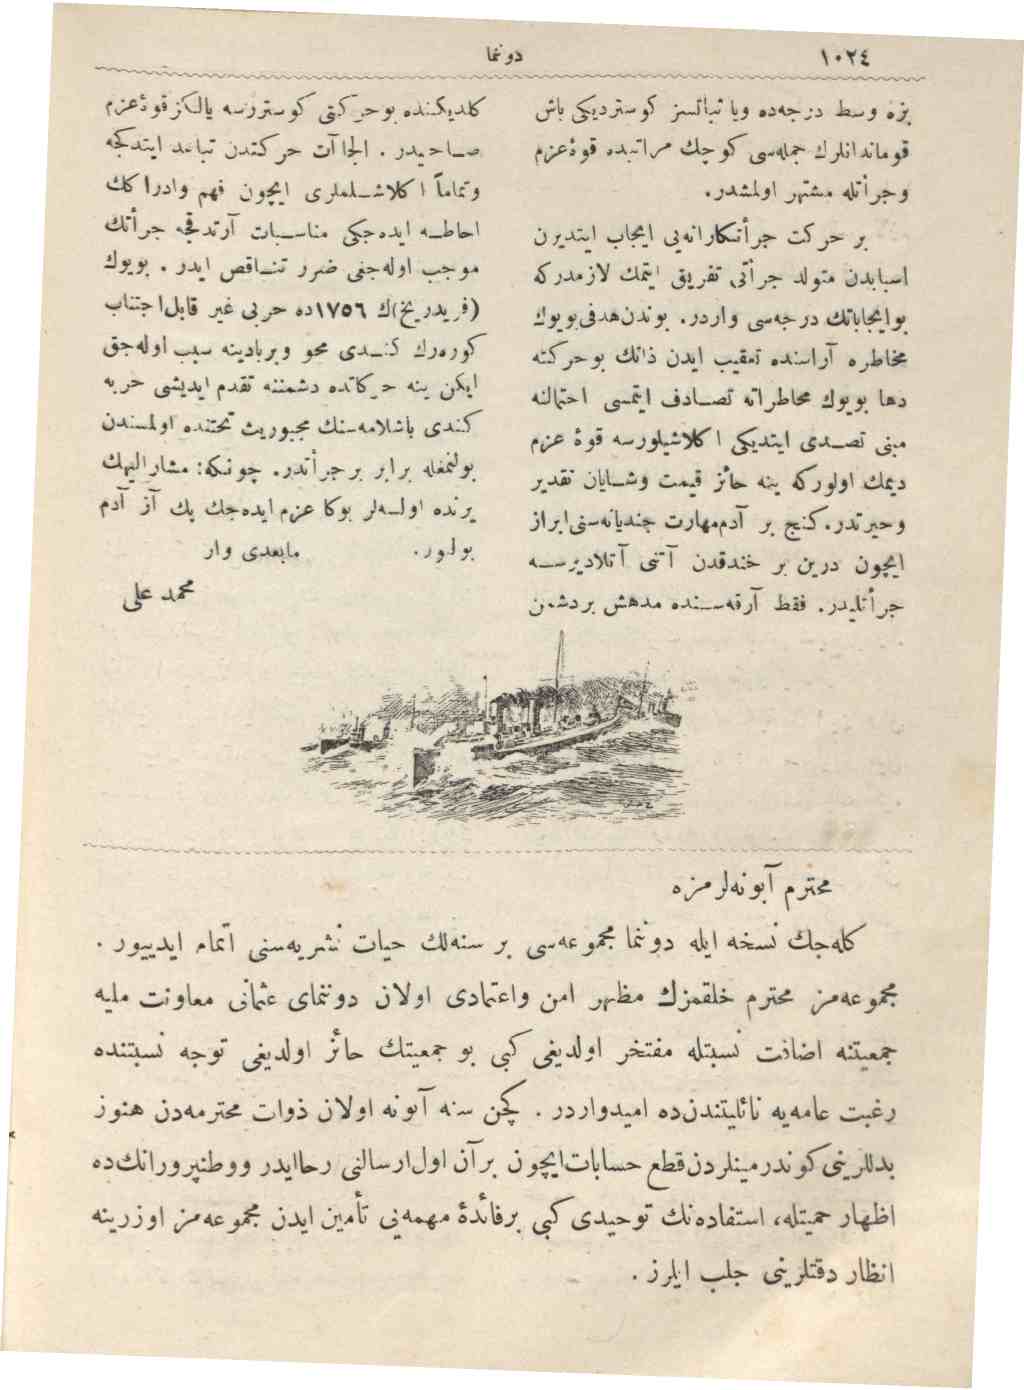 ١٠٢٤
دوننما
بزه وسط درجه‌ده ویا ثباتسز كوستردیكی باش
قوماندانلرك جمله‌سی كوچك مراتبده قوۀ عزم
وجرأتله مشتهر اولمشدر.
بر حركت جرأتكارانه‌یی ایجاب ایتدیرن
اسبابدن متولد جرأتی تفریق ایتمك لازمدركه
بو ایجاباتك درجه‌سی واردر. بوندن هدفی بویوك
مخاطره آراسنده تعقیب ایدن ذاتك بو حركتنه
دها بویوك مخاطراته تصادف ایتمسی احتمالنه
مبنی تصدی ایتدیكی اكلاشیلورسه قوۀ عزم
دیمك اولوركه ینه حائز قیمت وشایان تقدیر
وحیرتدر. كنج بر آدم مهارت جندیانه‌سنی ابراز
ایچون درین بر خندقدن آتنی آتلادیرسه
جرأتلیدر. فقط آرقه‌سنده مدهش بر دشمن
كلدیكنده بو حركتی كوستررسه یالكز قوۀ عزم
صاحبیدر. الجاآت حركتدن تباعد ایتدكجه
وتماماً اكلاشلملری ایچون فهم وادراكك
احاطه ایده‌جكی مناسبات آرتدقجه جرأتك
موجب اوله‌جغی ضرر تناقص ایدر. بویوك
(فریدریخ)ك ١٧٥٦ ده حربی غیر قابل اجتناب
كوره‌رك كندی محو وبربادینه سبب اوله‌جق
ایكن ینه حركاتده دشمننه تقدم ایدیشی حربه
كندی باشلامه‌سنك مجبوریت تحتنده اولمسندن
بولنمغله برابر بر جرأتدر. چونكه: مشارالیهك
یرنده اولسه‌لر بوكا عزم ایده‌جك پك آز آدم
بولنور.
مابعدی وار
محمد علی
محترم آبونه‌لرمزه
كله‌جك نسخه ایله دوننما مجموعه‌سی بر سنه‌لك حیات نشریه‌سنی اتمام ایدییور.
مجموعه‌مز محترم خلقمزك مظهر امن واعتمادی اولان دوننمای عثمانی معاونت ملیه
جمعیتنه اضافت نسبتله مفتخر اولدیغی كبی بو جمعیتك حائز اولدیغی توجه نسبتنده
رغبت عامه‌یه نائلیتندن‌ده امیدواردر. كچن سنه آبونه اولان ذوات محترمه‌دن هنوز
بدللرینی كوندرمینلردن قطع حسابات ایچون بر آن اول ارسالنی رجا ایدر ووطنپرورانك‌ده
اظهار حمیتله، استفاده‌نك توحیدی كبی بر فائدۀ مهمه‌یی تأمین ایدن مجموعه‌مز اوزرینه
انظار دقتلرینی جلب ایلرز.